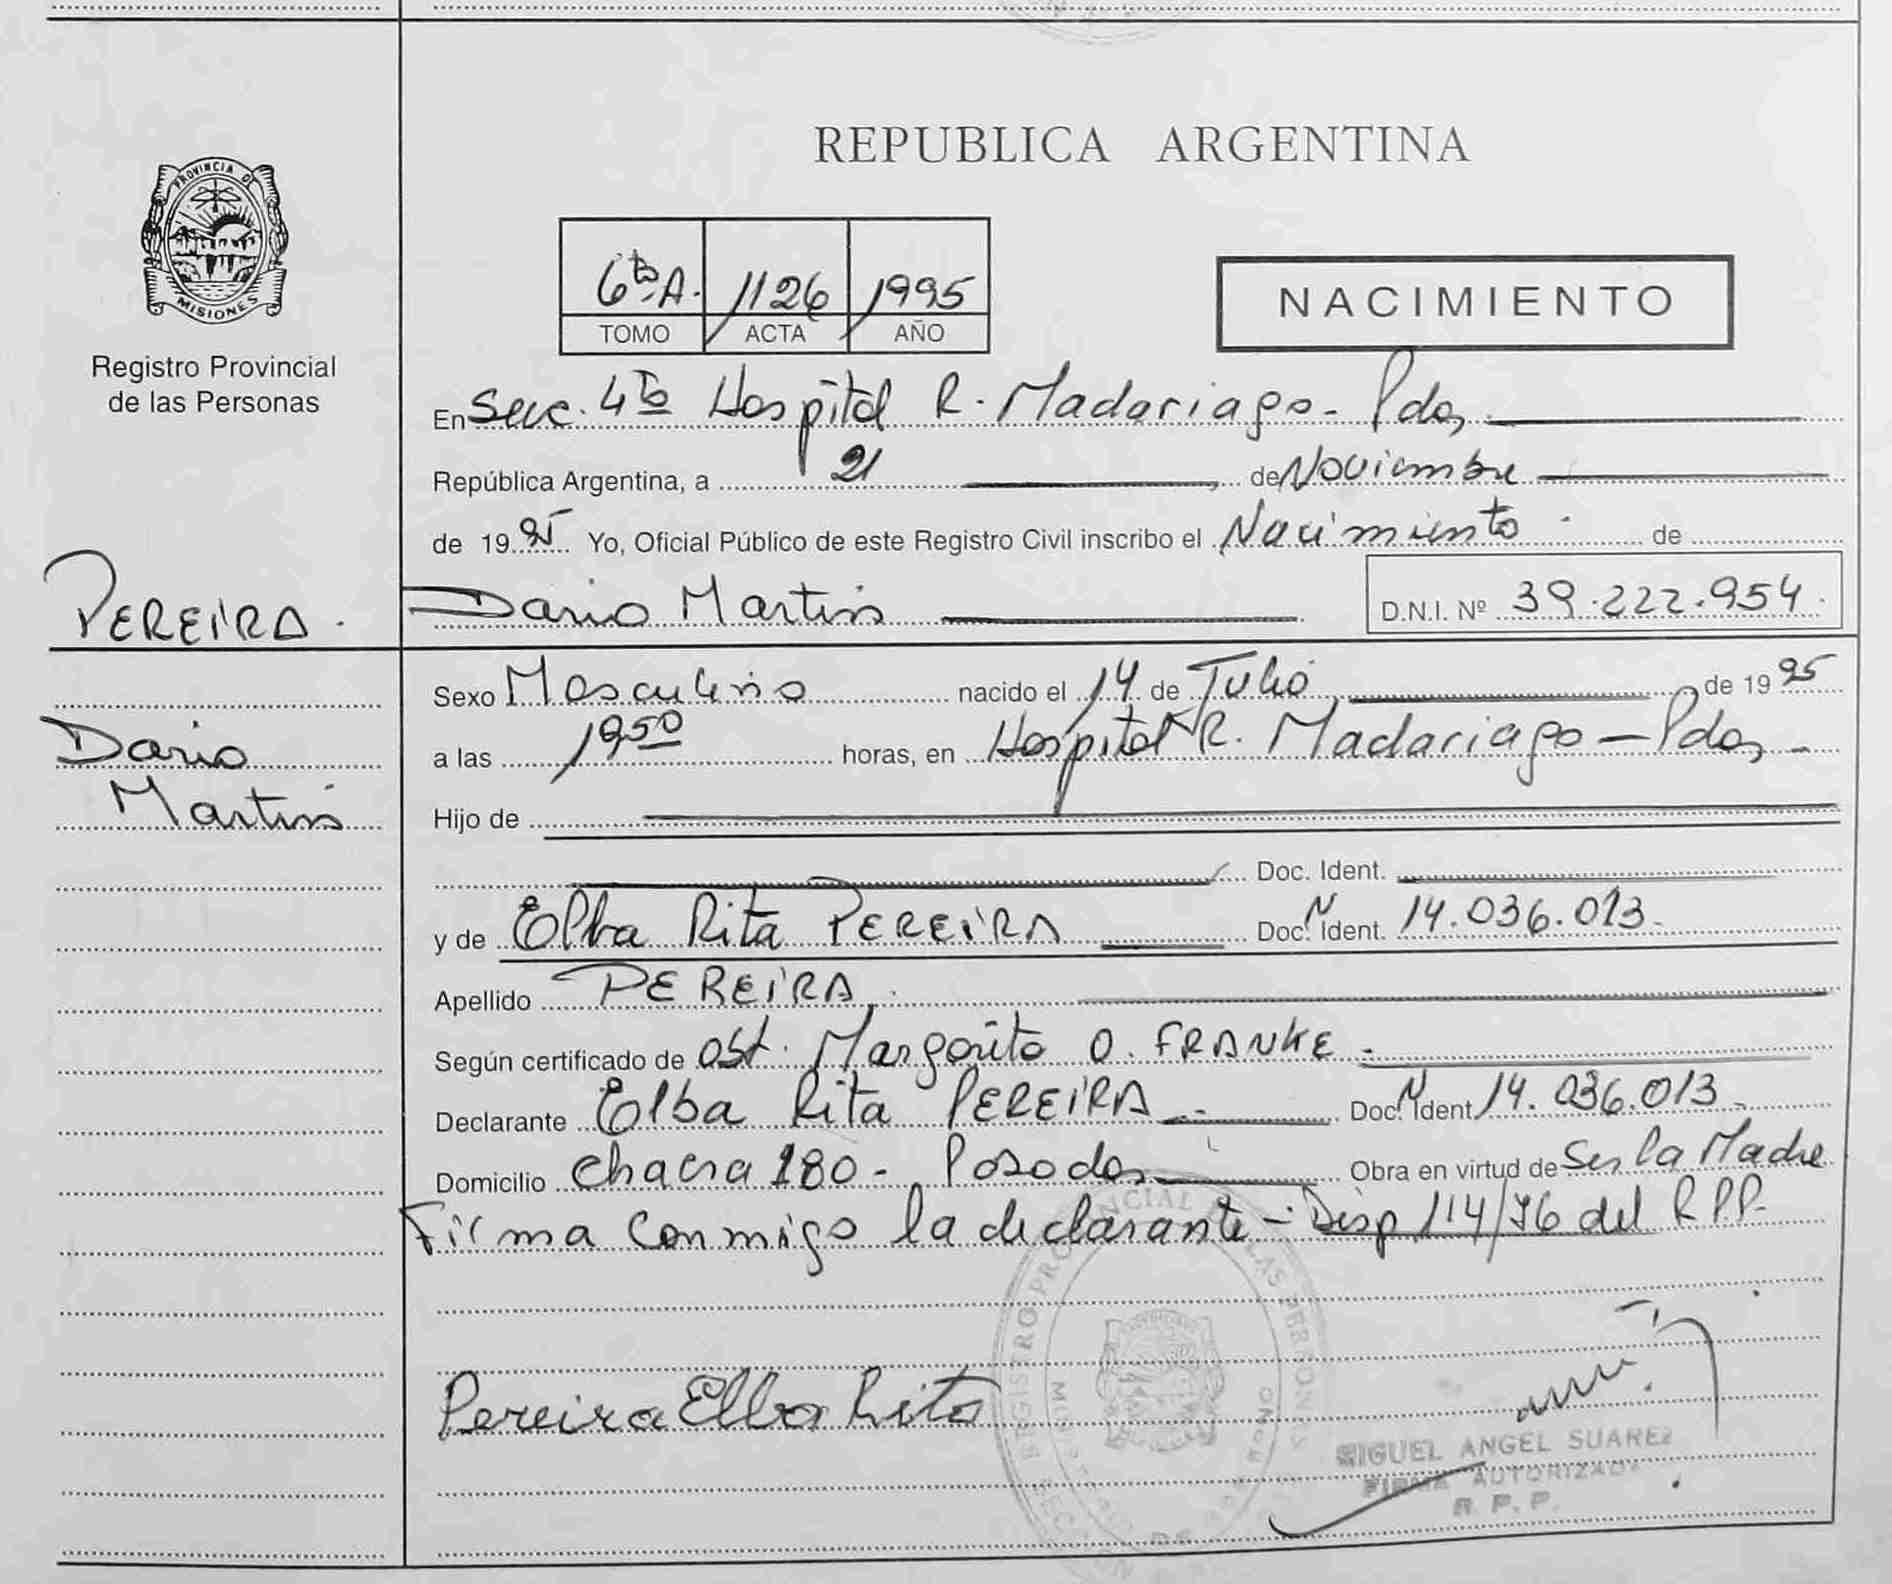 REPUBLICA ARGENTINA
PROVINCIA DE
MISIONES
Registro Provincial
de las Personas
6to A. 1126 1995
TOMO ACTA AÑO
NACIMIENTO
En Secc. 4ta Hospital R. Madariaga - Pdas
República Argentina, a 21 de Noviembre
de 1995 Yo, Oficial Público de este Registro Civil inscribo el Nacimiento de
PEREIRA.
Dario Martin D.N.I. Nº 39.222.954.
Sexo Masculino nacido el 14 de Julio de 1995
Dario
Martin
a las 1950 horas, en Hospital R. Madariaga - Pdas -
Hijo de
Doc. Ident.
y de Elba Rita PEREIRA Doc. N Ident. 14.036.013.
Apellido PEREIRA.
Según certificado de Ost. Margarita O. FRANKE -
Declarante Elba Rita PEREIRA - Doc. N Ident 14.036.013.
Domicilio Chacra 180 - Posadas Obra en virtud de Ser la Madre
Firma conmigo la declarante - Disp. 114/76 del R.P.P.
Pereira Elba Rita
REGISTRO PROVINCIAL DE LAS PERSONAS
MIGUEL ANGEL SUAREZ
FIRMA AUTORIZADA
R. P. P.